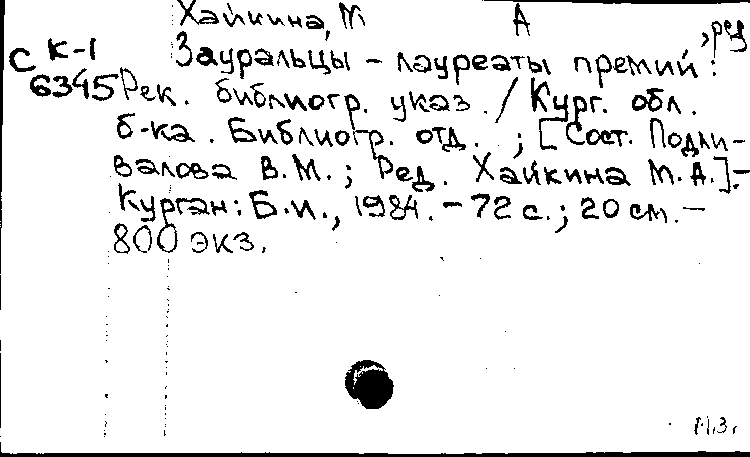 Хайкина, М А , ред
С К-1 Зауральцы - лауреаты премий :
6345 Рек. библиогр. указ. / Кург. обл.
б-ка. Библиогр. отд. ; [Сост. Подли-
валова В.М.; Ред. Хайкина М.А.].-
Курган: Б.и., 1984. - 72 с.; 20 см. -
800 экз.
М.З.